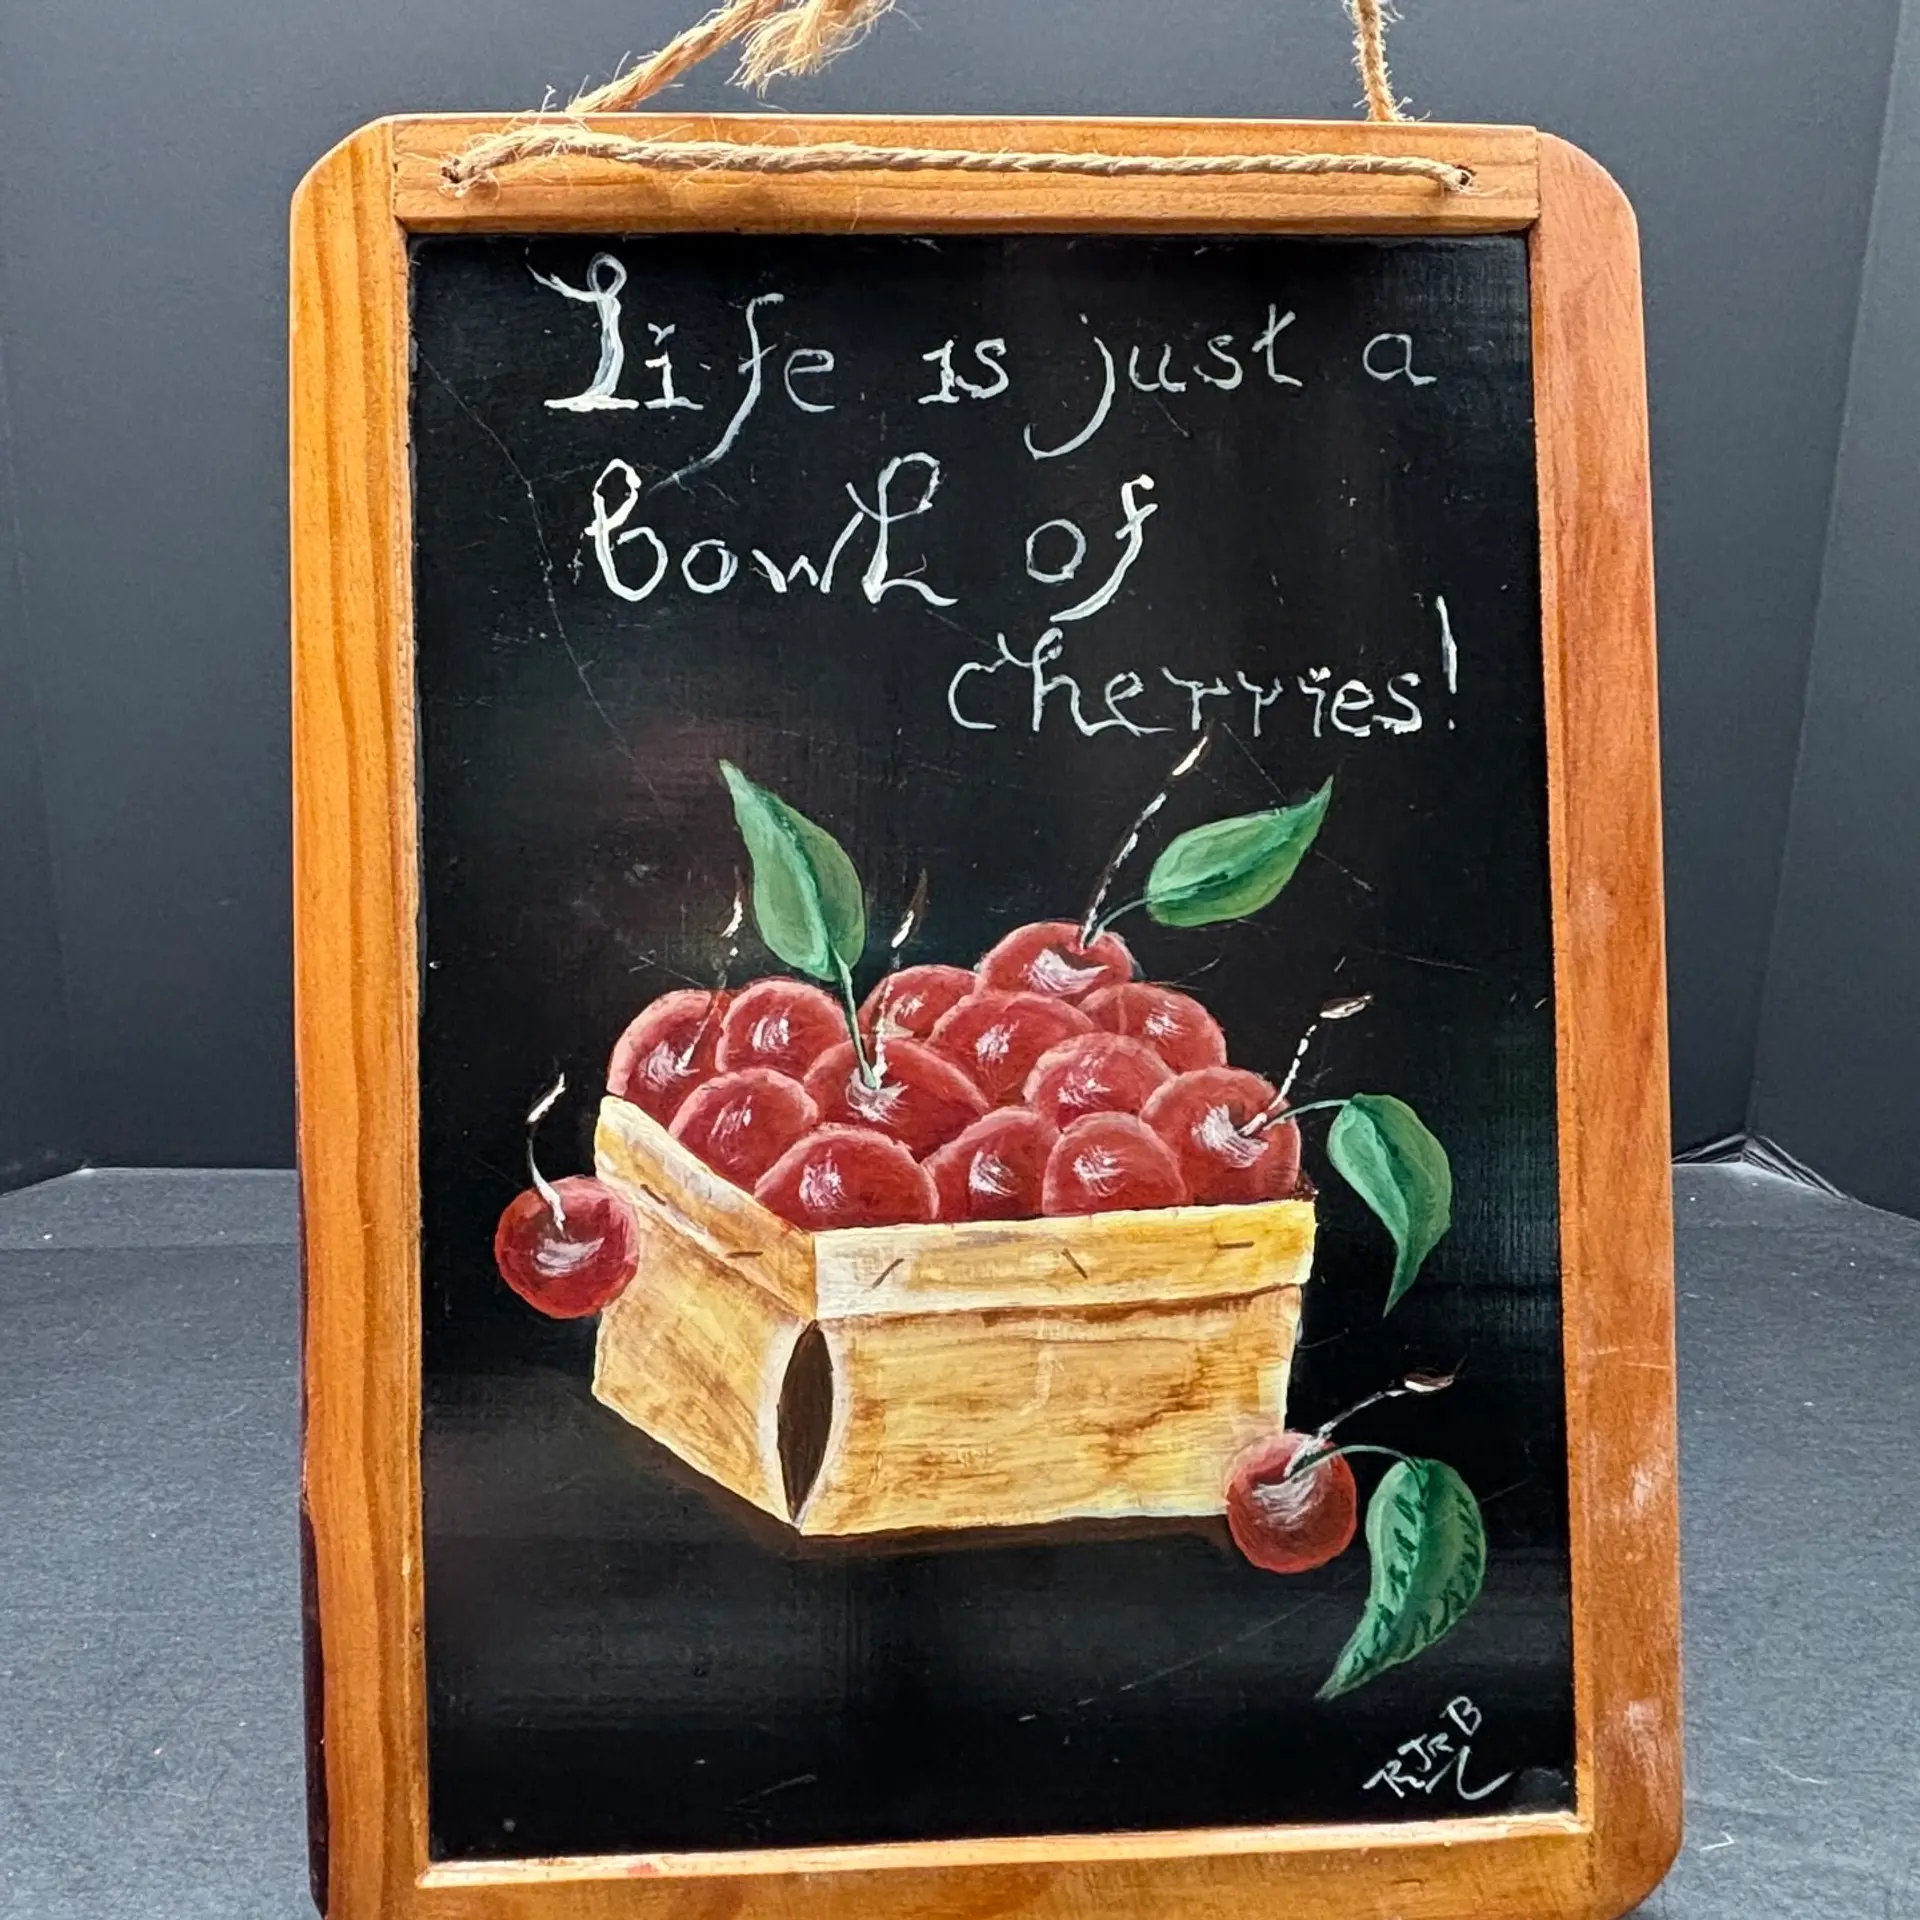 Life is just a
bowl of
cherries!
JR B